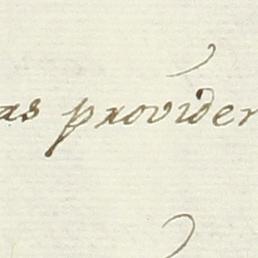 as provider